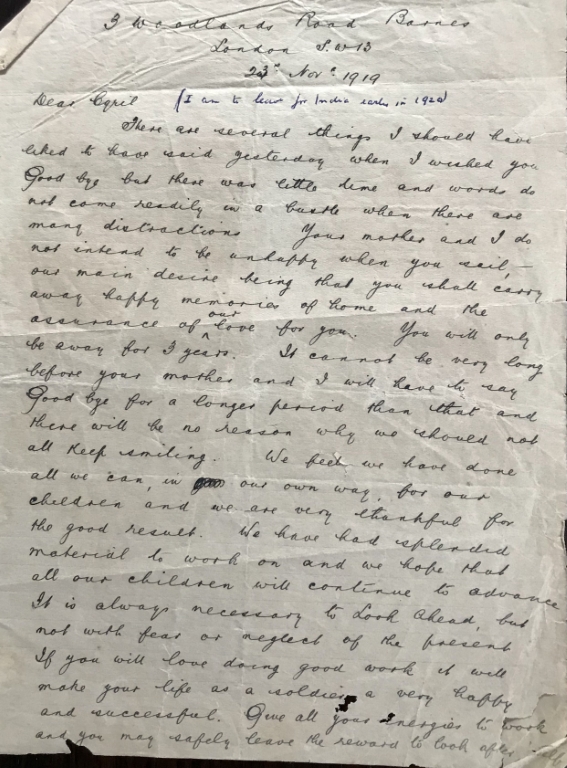 3 Woodlands Road Barnes
London S.W 13
23rd Nov. 1919
Dear Cyril (I am to leave for India early in 1920)
There are several things I should have
liked to have said yesterday when I wished you
Good bye but there was little time and words do
not come readily in a bustle when there are
many distractions Your mother and I do
not intend to be unhappy when you sail,
our main desire being that you shall carry
away happy memories of home and the
assurance of our love for you. You will only
be away for 3 years. It cannot be very long
before your mother and I will have to say
Good bye for a longer period than that and
there will be no reason why we should not
all keep smiling. We feel we have done
all we can, in our own way, for our
children and we are very thankful for
the good result. We have had splendid
material to work on and we hope that
all our children will continue to advance
It is always necessary to Look Ahead, but
not with fear or neglect of the present
If you will love doing good work it will
make your life as a soldier a very happy
and successful. Give all your energies to work
and you may safely leave the reward to look after